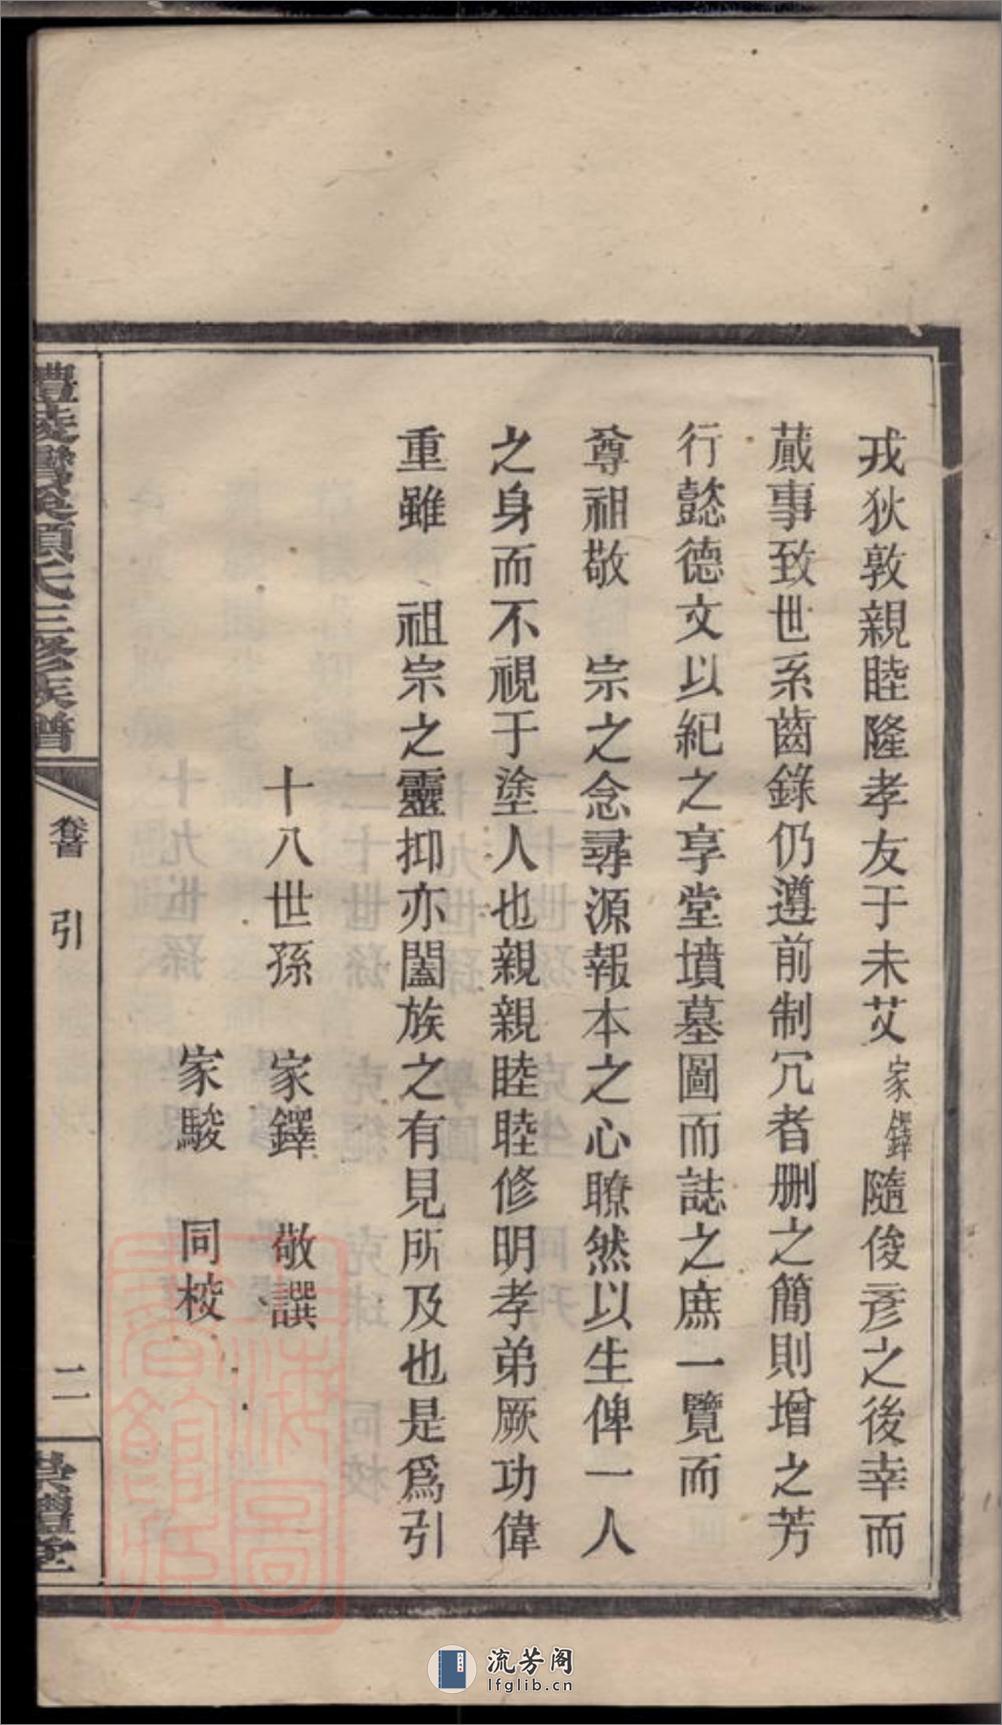 戎狄敦親睦隆孝友于未艾家鐸隨俊彥之後幸而
蕆事致世系齒錄仍遵前制冗者删之簡則增之芳
行懿德文以紀之享堂墳墓圖而誌之庶一覽而
尊祖敬　宗之念尋源報本之心瞭然以生俾一人
之身而不視于塗人也親親睦睦修明孝弟厥功偉
重雖　祖宗之靈抑亦闔族之有見所及也是爲引
十八世孫　家鐸　敬譔
家駿　同校
氏三修族譜
卷首　引
二
禮堂
上海圖書館藏
流芳阁
lfglib.cn